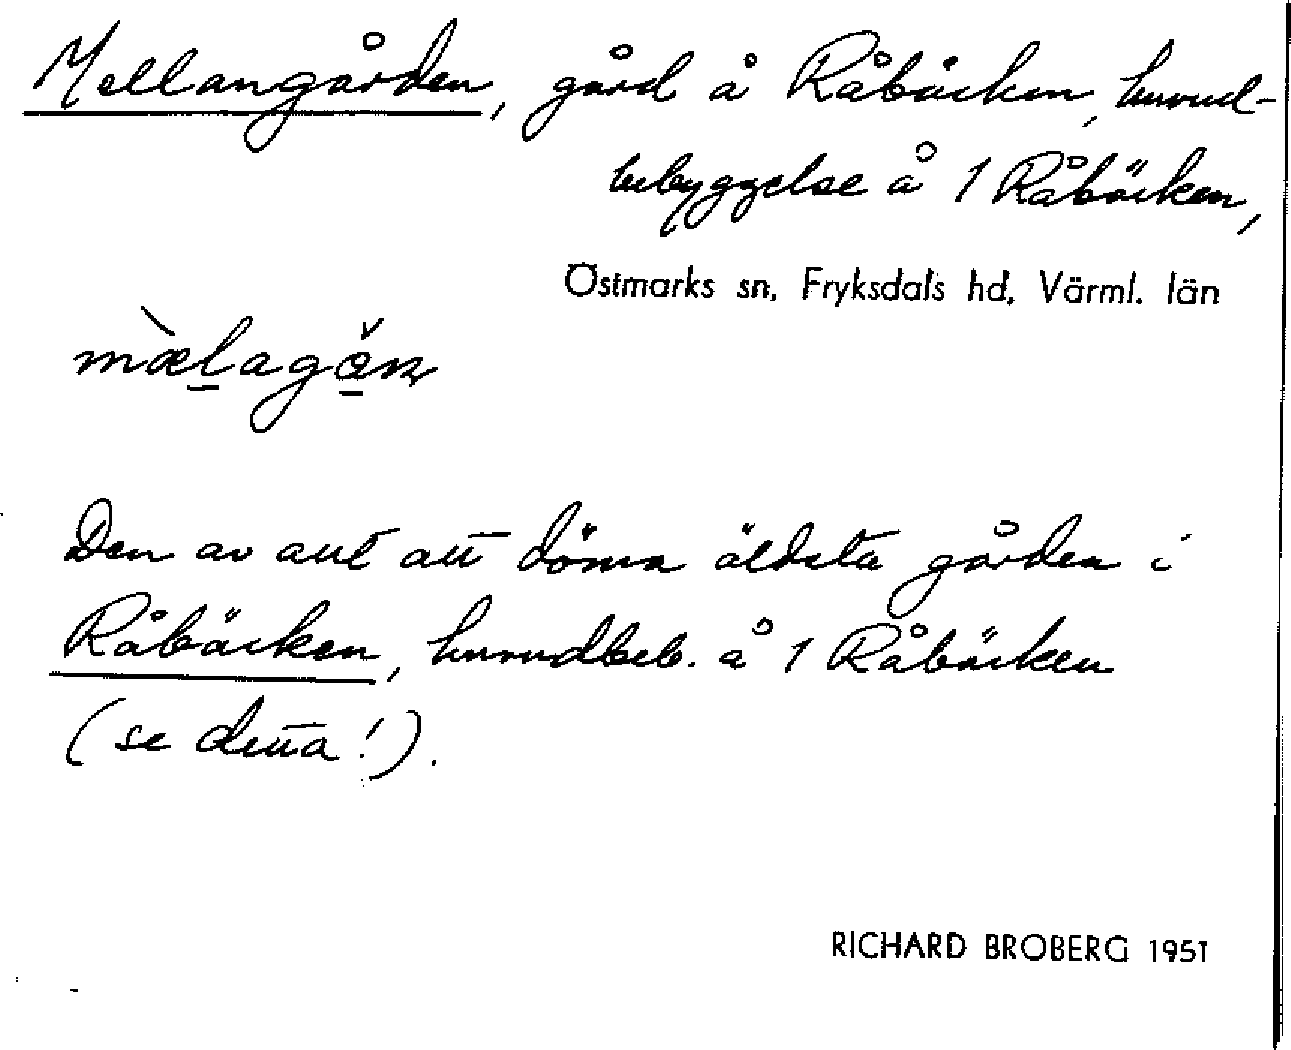 Mellangården, gård å Råbäcken, huvud-
bebyggelse å 1 Råbäcken,
Östmarks sn, Fryksdals hd, Värml. län
Den av allt att döma äldsta gården i
Råbäcken, huvudbeb. å 1 Råbäcken
(se detta!).
RICHARD BROBERG 1951